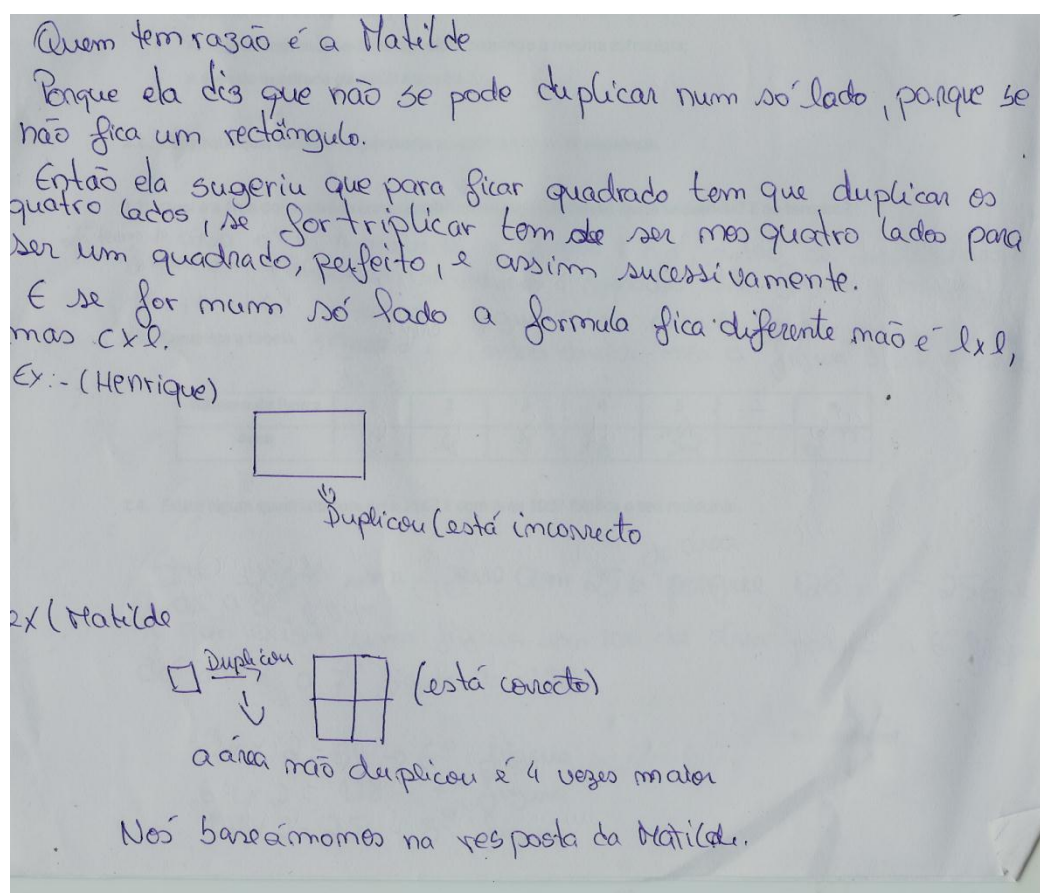 Quem tem razão é a Matilde
Porque ela diz que não se pode duplicar num só lado, porque se
não fica um rectângulo.
Então ela sugeriu que para ficar quadrado tem que duplicar os
quatro lados, se for triplicar tem de ser nos quatro lados para
ser um quadrado, perfeito, e assim sucessivamente.
E se for num só lado a formula fica diferente não é lxl,
mas cxl.
Ex:- (Henrique)
Duplicou (está incorrecto
ex (Matilde
Duplicou
(está correcto)
a área não duplicou é 4 vezes maior
Nós baseámomos na resposta da Matilde.